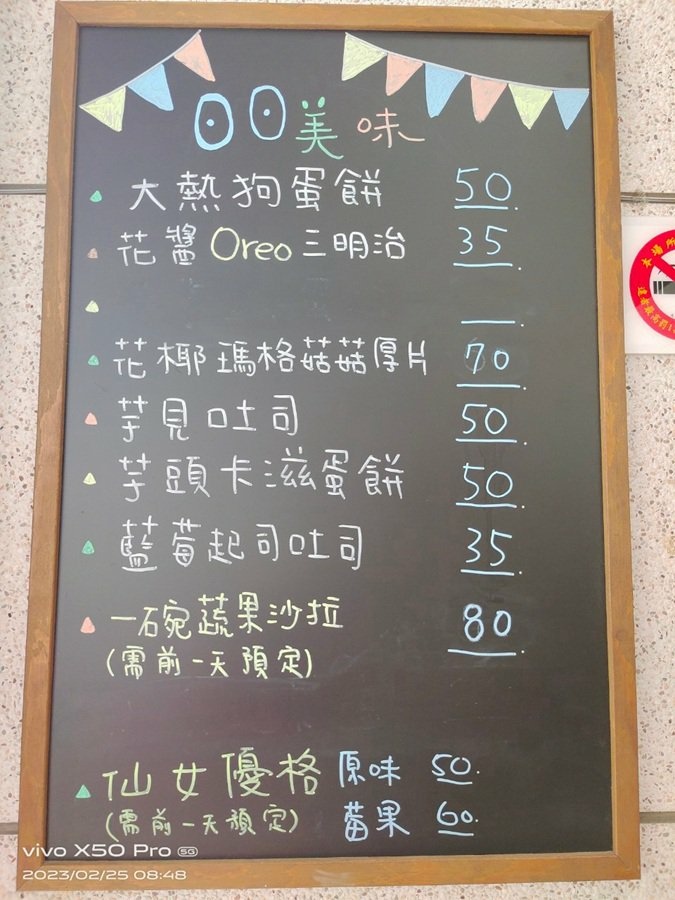 口口美味
大熱狗蛋餅 50.
花醬Oreo三明治 35.
花椰瑪格菇菇厚片 70.
芋見吐司 50.
芋頭卡滋蛋餅 50.
藍莓起司吐司 35.
一碗蔬果沙拉 80.
(需前一天預定)
仙女優格 原味 50.
(需前一天預定) 莓果 60.
vivo X50 Pro 5G
2023/02/25 08:48
本場所